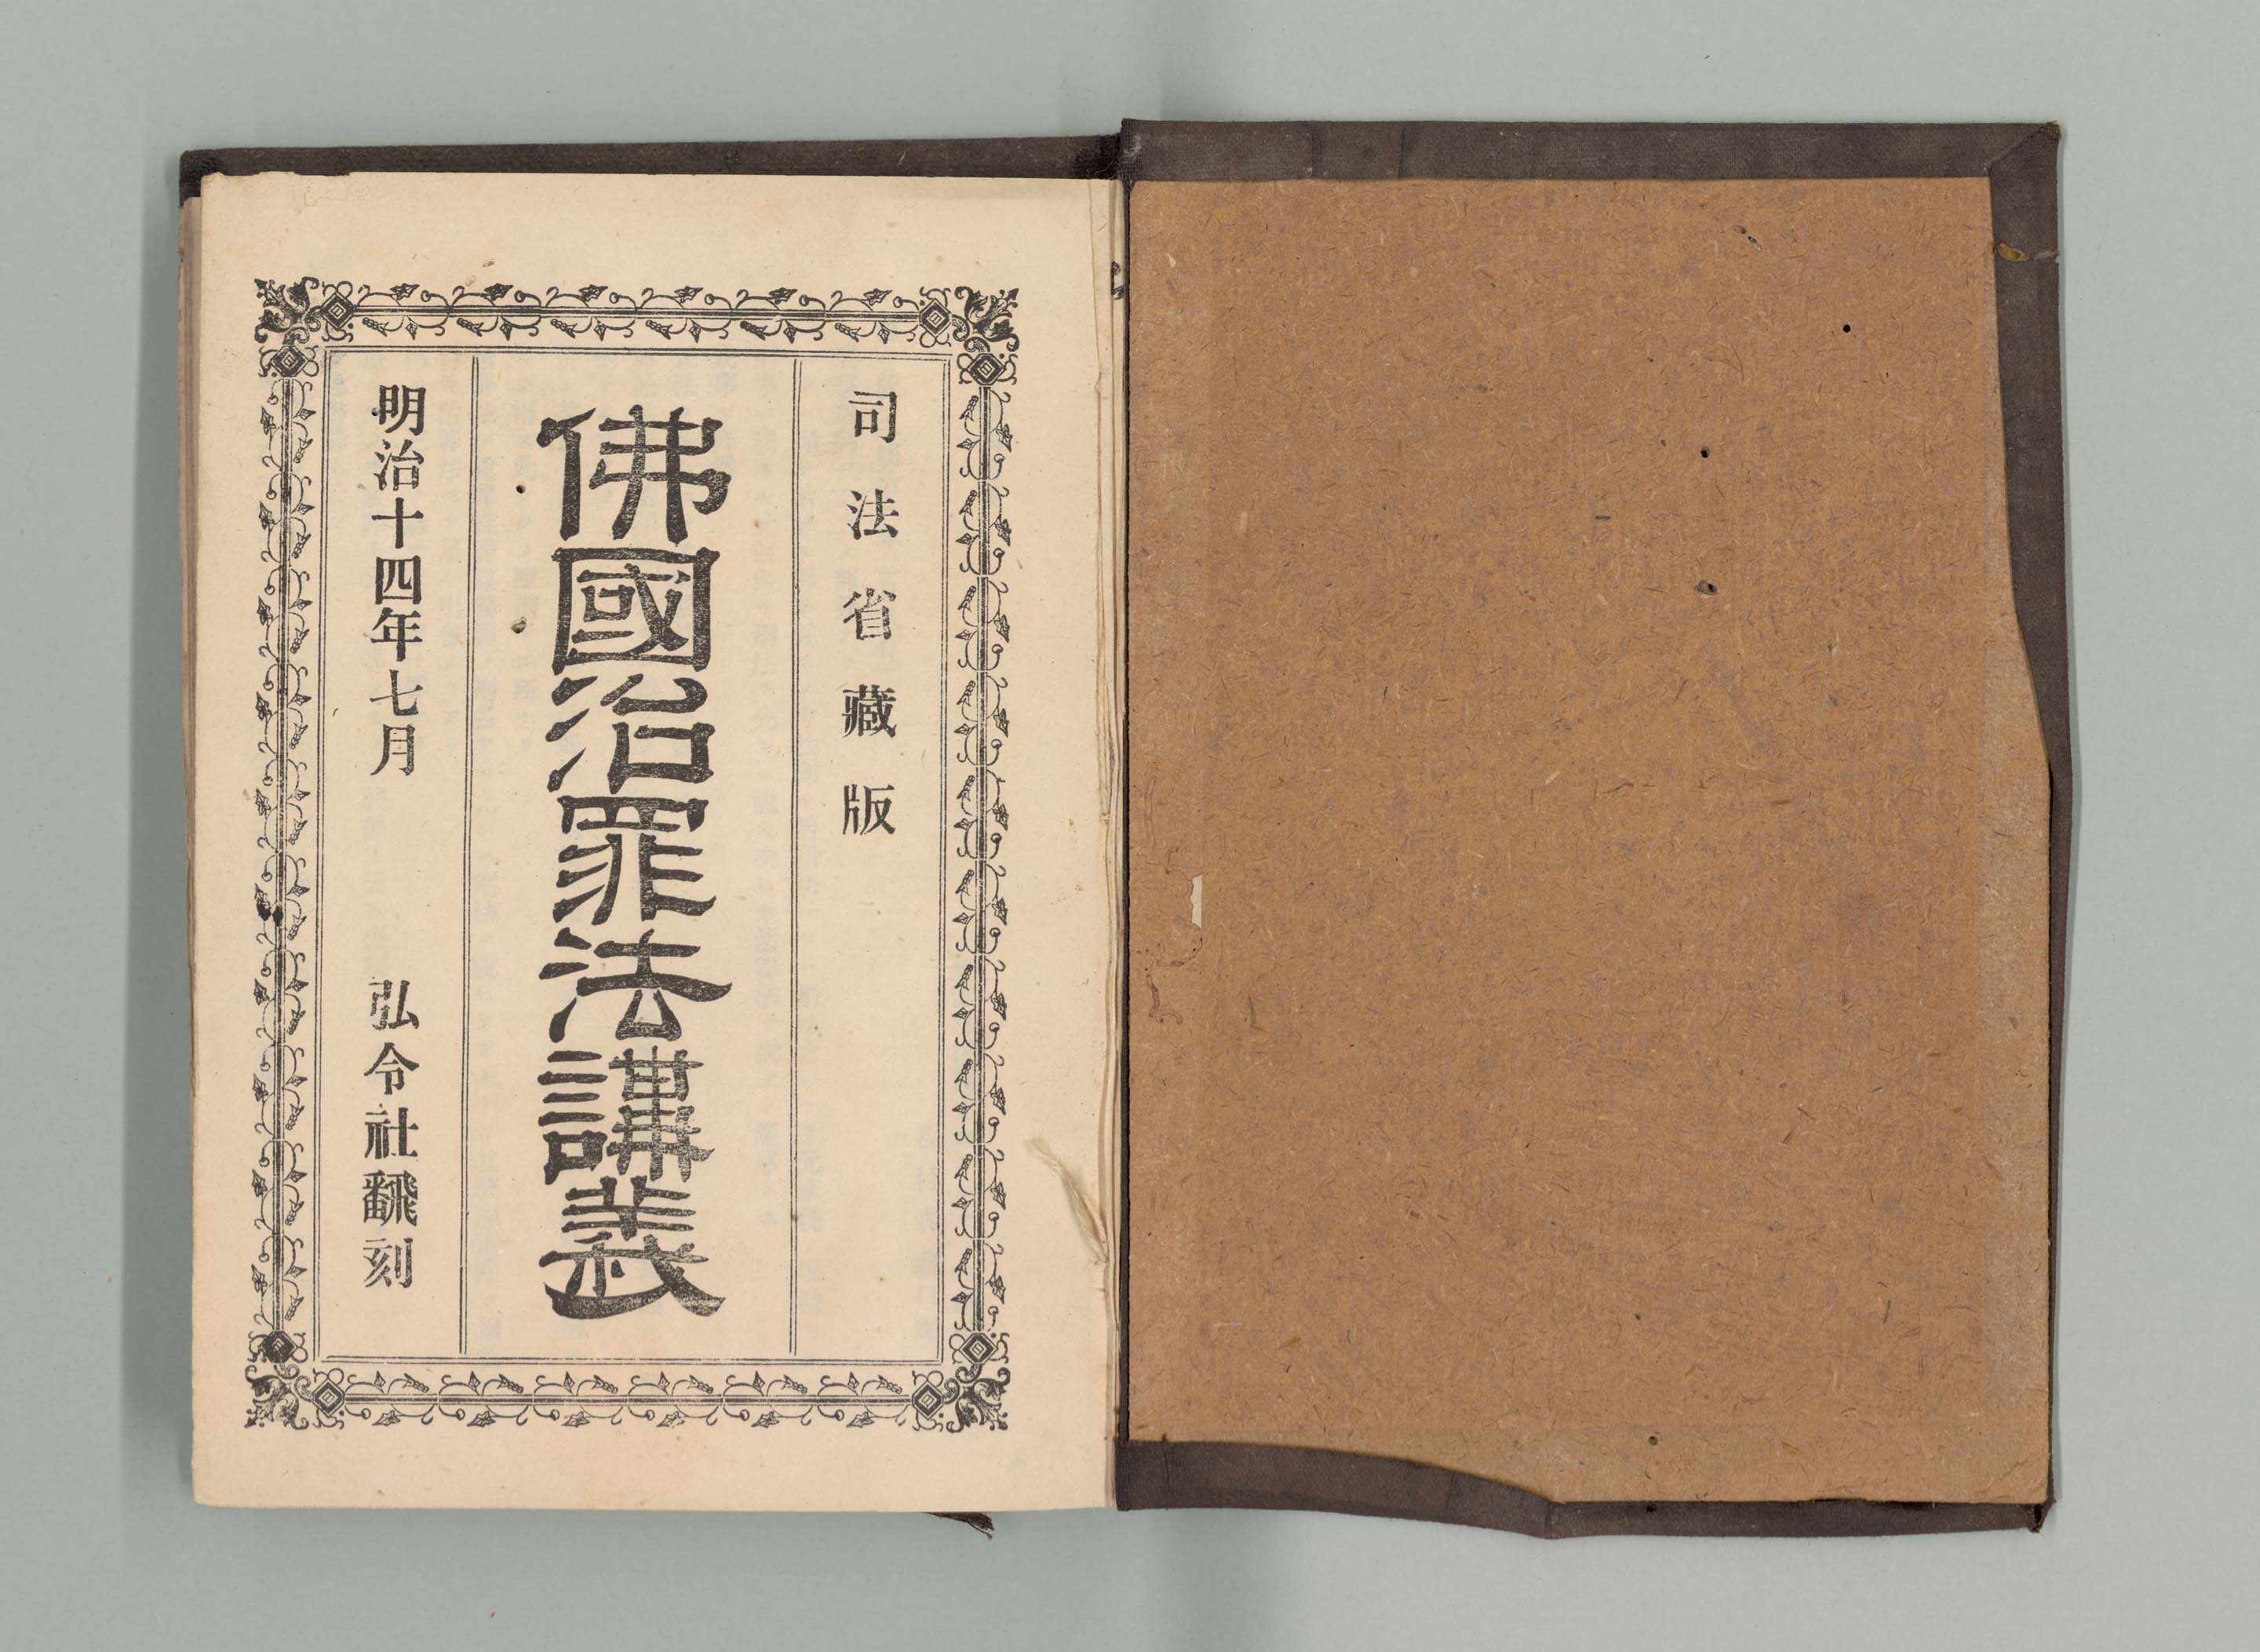 司法省藏版
佛國治罪法講義
明治十四年七月 弘令社飜刻